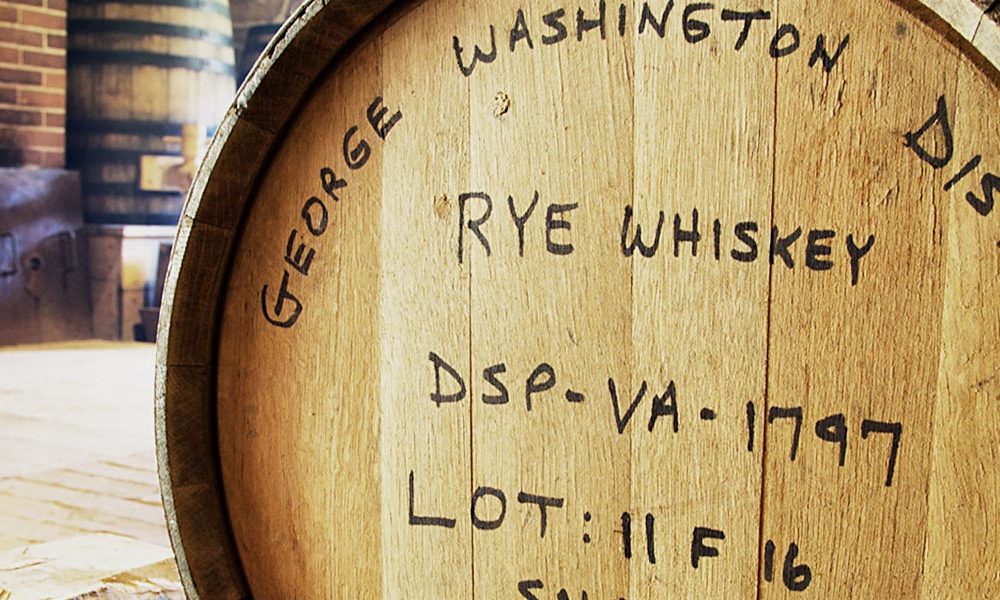 GEORGE WASHINGTON DIS
RYE WHISKEY
DSP-VA-1797
LOT: 11 F 16